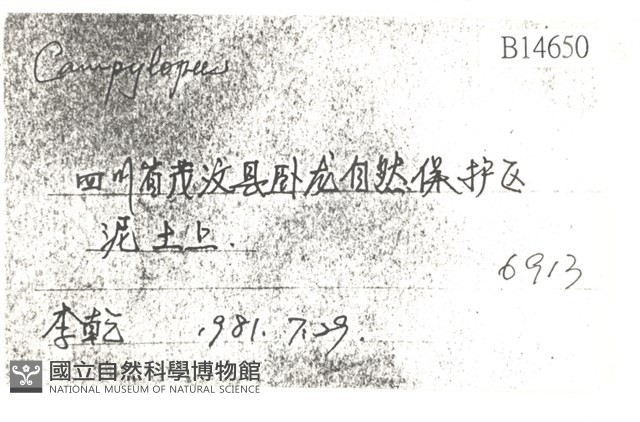 B14650
Campylopus
四川省茂汶县卧龙自然保护区
泥土上.
6913
李乾 1981.7.29.
國立自然科學博物館
NATIONAL MUSEUM OF NATURAL SCIENCE